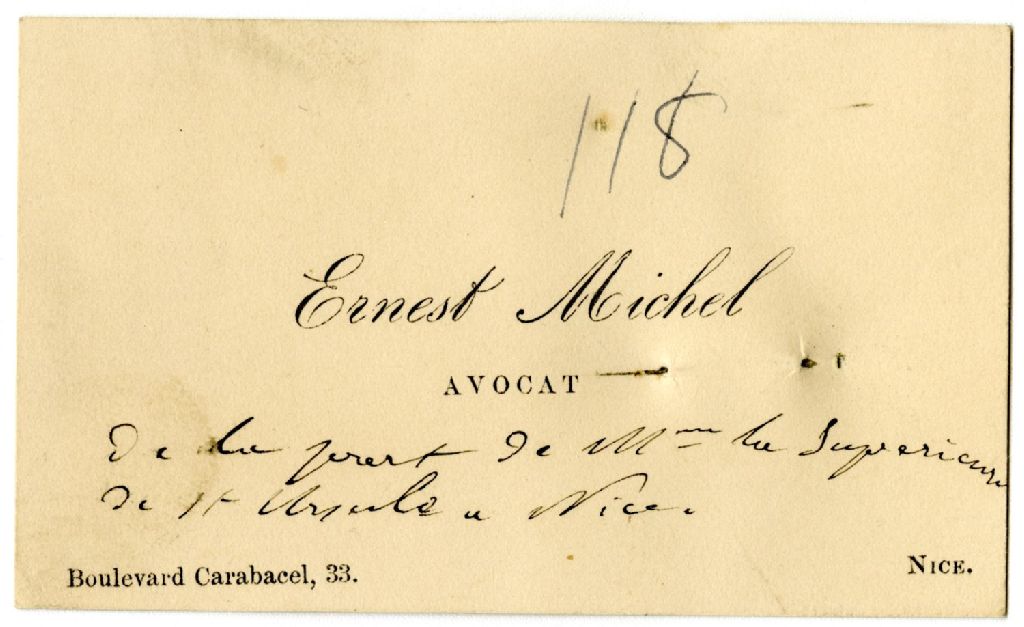 118
Ernest Michel
AVOCAT
De la part de Mme la Superieure
de St Ursule a Nice.
Boulevard Carabacel, 33.
NICE.